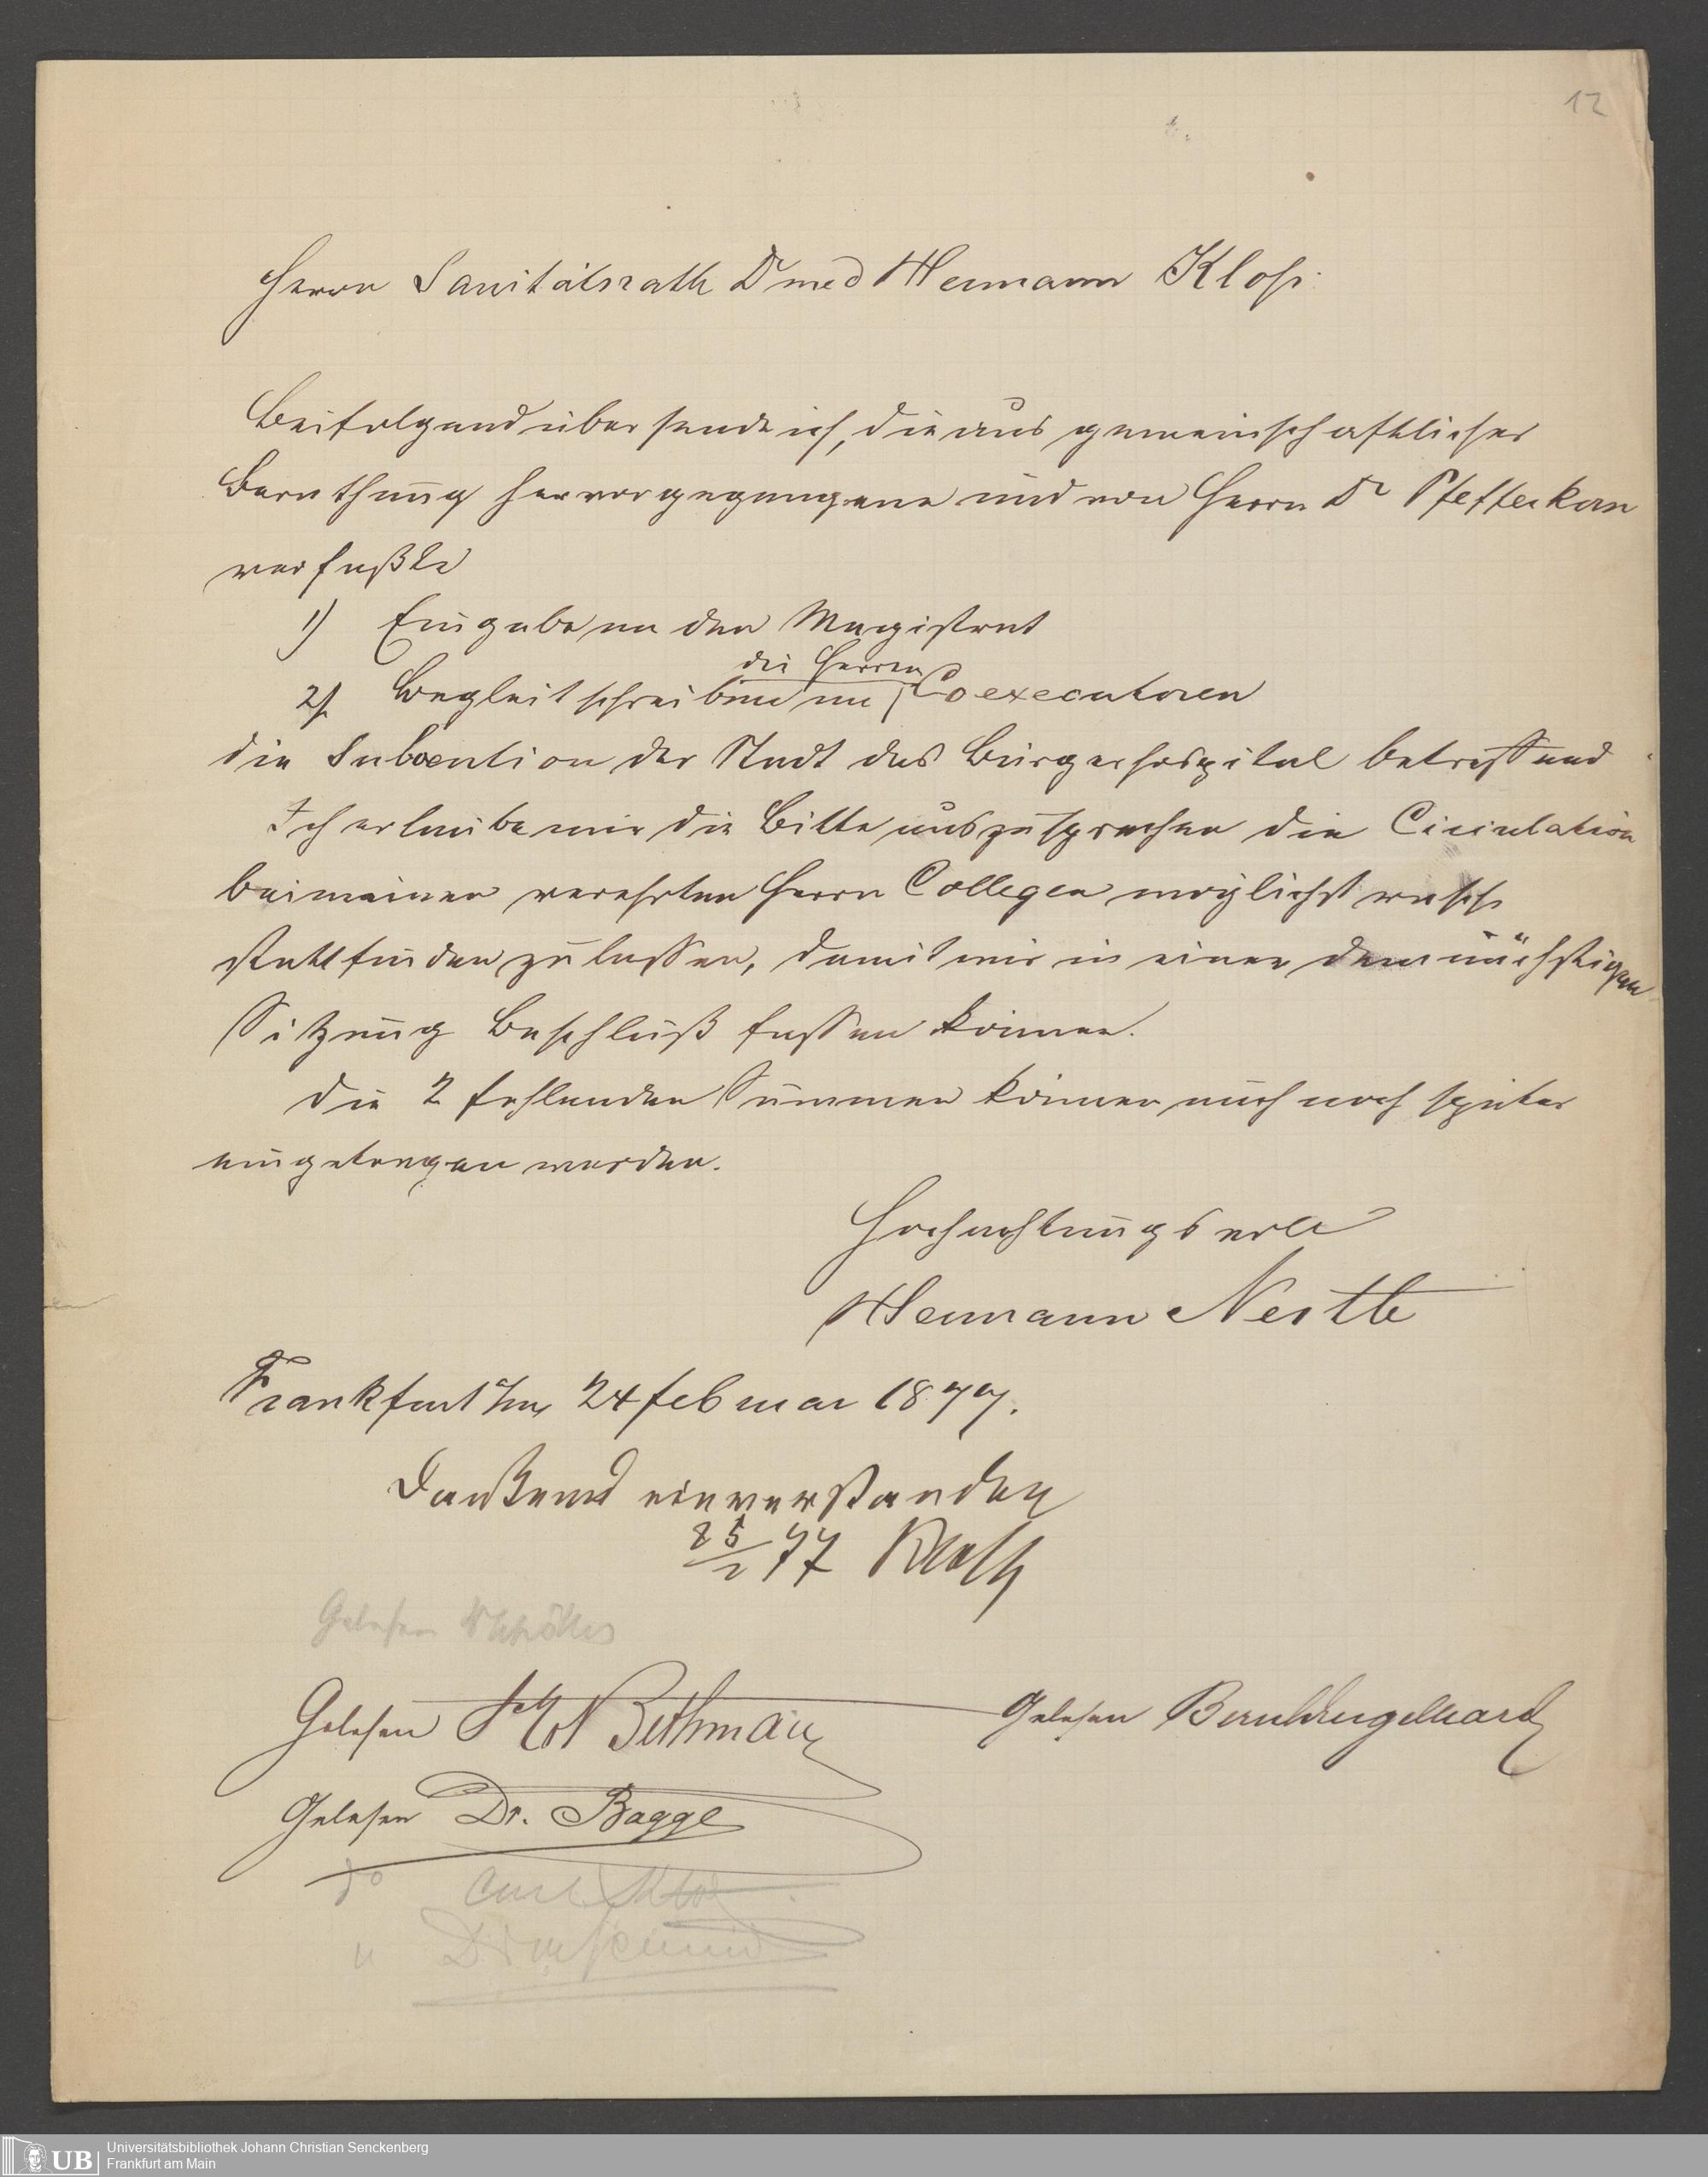 12
Herrn Sanitätsrath Dr med Hermann Kloß.
Beifolgend übersende ich, die aus gemeinschaftlicher
Berathung hervorgegangene und von Herrn Dr Pfefferkorn
verfaßte
1) Eingabe an den Magistrat
2) Begleitschreiben an die Herren Coexecutoren
die Subvention der Stadt das Bürgerhospital betreffend
Ich erlaube mir die Bitte auszusprechen die Circulation
bei meinen verehrten Herrn Collegen möglichst rasch
stattfinden zu lassen, damit wir in einer demnächstigen
Sitzung Beschluß fassen können.
Die 2 fehlenden Summen können auch noch später
eingetragen werden.
Hochachtungsvoll
Hermann Nestle
Frankfurt a/m 24 februar 1877.
Dankend einverstanden
25/2 77 Kloß
Gelesen
Gelesen Bethmann
Gelesen
Gelesen Dr. Bagge
do Carl
"
Universitätsbibliothek Johann Christian Senckenberg
UB
Frankfurt am Main